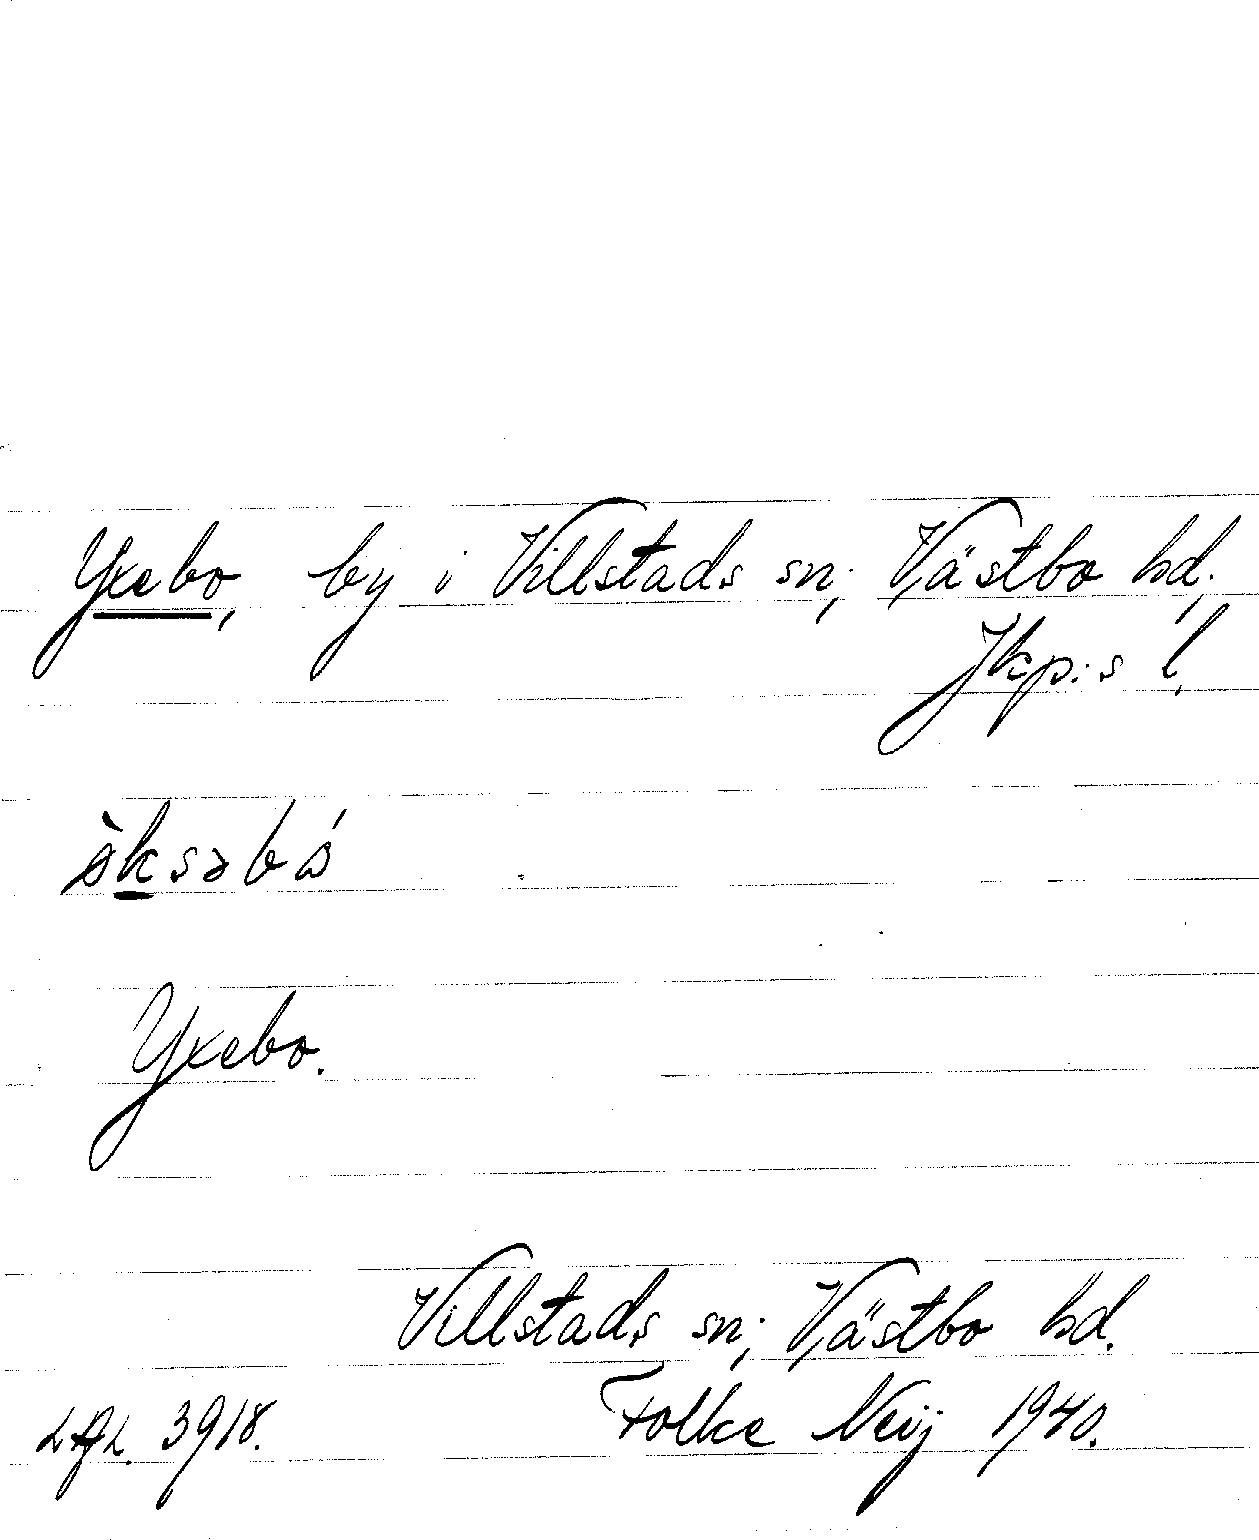 Yxebo, by i Villstads sn; Västbo hd,
Jkp:s l.
Yxebo.
Villstads sn; Västbo hd.
Folke Neij 1940.
3918.